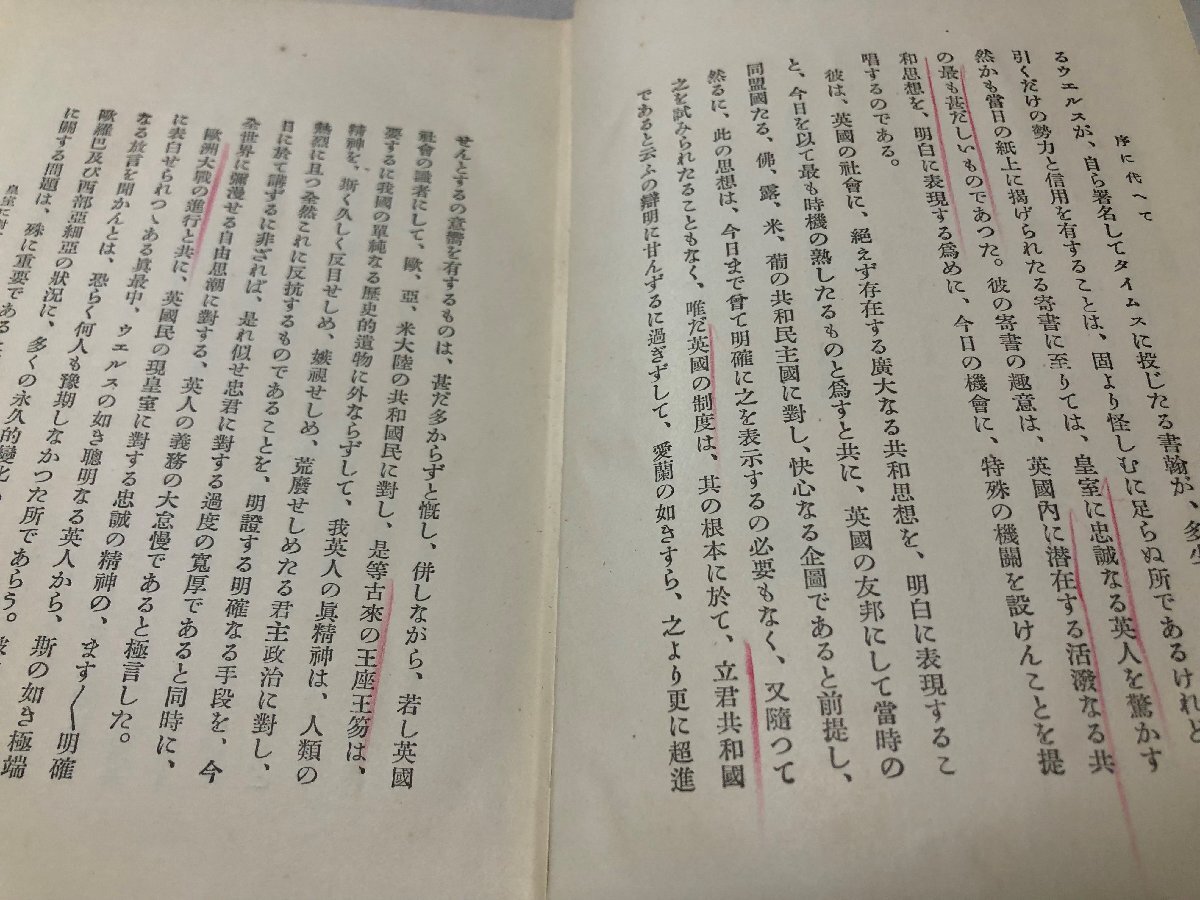 序に代へて
るウエルスが、自ら署名してタイムスに投じたる書翰が、多少
引くだけの勢力と信用を有することは、固より怪しむに足らぬ所であるけれと
然かも當日の紙上に揭げられたる寄書に至りては、皇室に忠誠なる英人を驚かす
の最も甚だしいものであつた。彼の寄書の趣意は、英國內に潜在する活潑なる共
和思想を、明白に表現する爲めに、今日の機會に、特殊の機關を設けんことを提
唱するのである。
彼は、英國の社會に、絕えず存在する廣大なる共和思想を、明白に表現するこ
と、今日を以て最も時機の熟したるものと爲すと共に、英國の友邦にして當時の
同盟國たる、佛、露、米、葡の共和民主國に對し、快心なる企圖であると前提し、
然るに、此の思想は、今日まで曾て明確に之を表示するの必要もなく、又隨つて
之を試みられたることもなく、唯だ英國の制度は、其の根本に於て、立君共和國
であると云ふの辯明に甘んずるに過ぎずして、愛蘭の如きすら、之より更に超進
せんとするの意嚮を有するものは、甚だ多からずと慨し、併しながら、若し英國
社會の識者にして、歐、亞、米大陸の共和國民に對し、是等古來の王座王笏は、
要するに我國の單純なる歷史的遺物に外ならずして、我英人の眞精神は、人類の
精神を、斯く久しく反目せしめ、嫉視せしめ、荒廢せしめたる君主政治に對し、
熱烈に且つ全然これに反抗するものであることを、明證する明確なる手段を、今
日に於て講ずるに非ざれば、是れ似せ忠君に對する過度の寬厚であると同時に、
全世界に彌漫せる自由思潮に對する、英人の義務の大怠慢であると極言した。
歐洲大戰の進行と共に、英國民の現皇室に對する忠誠の精神の、ます〱明確
に表白せられつゝある眞最中、ウエルスの如き聰明なる英人から、斯の如き極端
なる放言を聞かんとは、恐らく何人も豫期しなかつた所であらう。
歐羅巴及び西部亞細亞の狀況に、多くの永久的變化
に關する問題は、殊に重要である